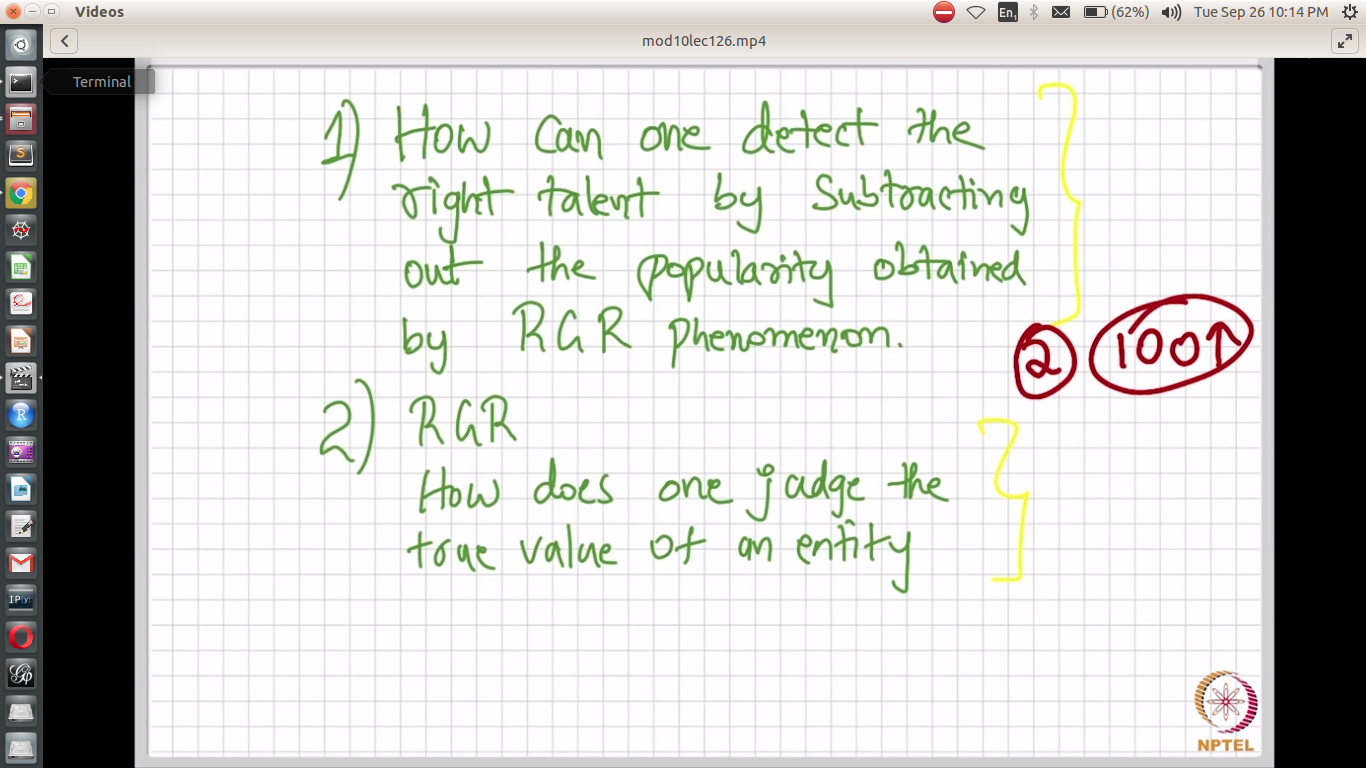 Videos
En1
(62%)
Tue Sep 26 10:14 PM
mod10lec126.mp4
Terminal
1) How Can one detect the
right talent by Subtracting
out the popularity obtained
by RGR phenomenon.
2 100↑
2) RGR
How does one judge the
true value of an entity
NPTEL